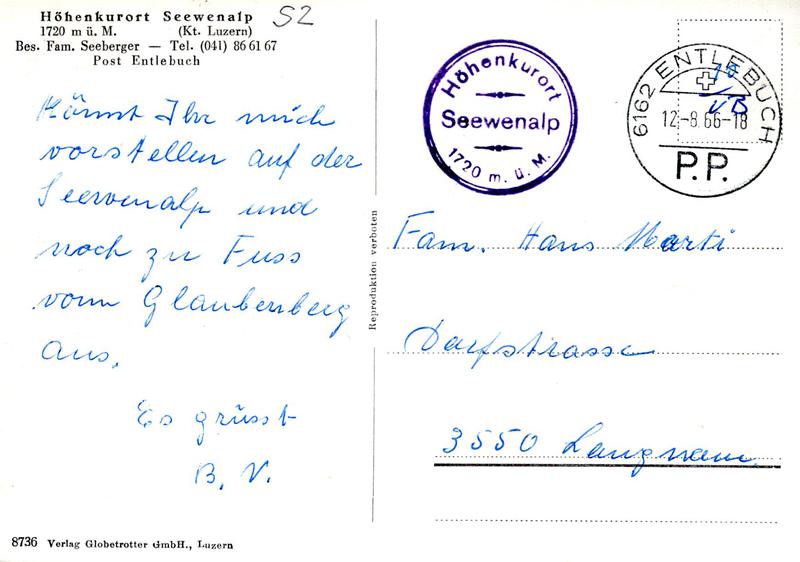 Höhenkurort Seewenalp
1720 m ü. M. (Kt. Luzern)
Bes. Fam. Seeberger — Tel. (041) 86 61 67
Post Entlebuch
S2
Könnt Ihr mich
vorstellen auf der
Seewenalp und
noch zu Fuss
vom Glaubenberg
aus.
Es grüsst
B. V.
8736 Verlag Globetrotter GmbH., Luzern
Reproduktion verboten
Höhenkurort
Seewenalp
1720 m. ü. M.
6162 ENTLEBUCH
12.-8.66-18
P.P.
Fam. Hans Marti
Dorfstrasse
3550 Langnau